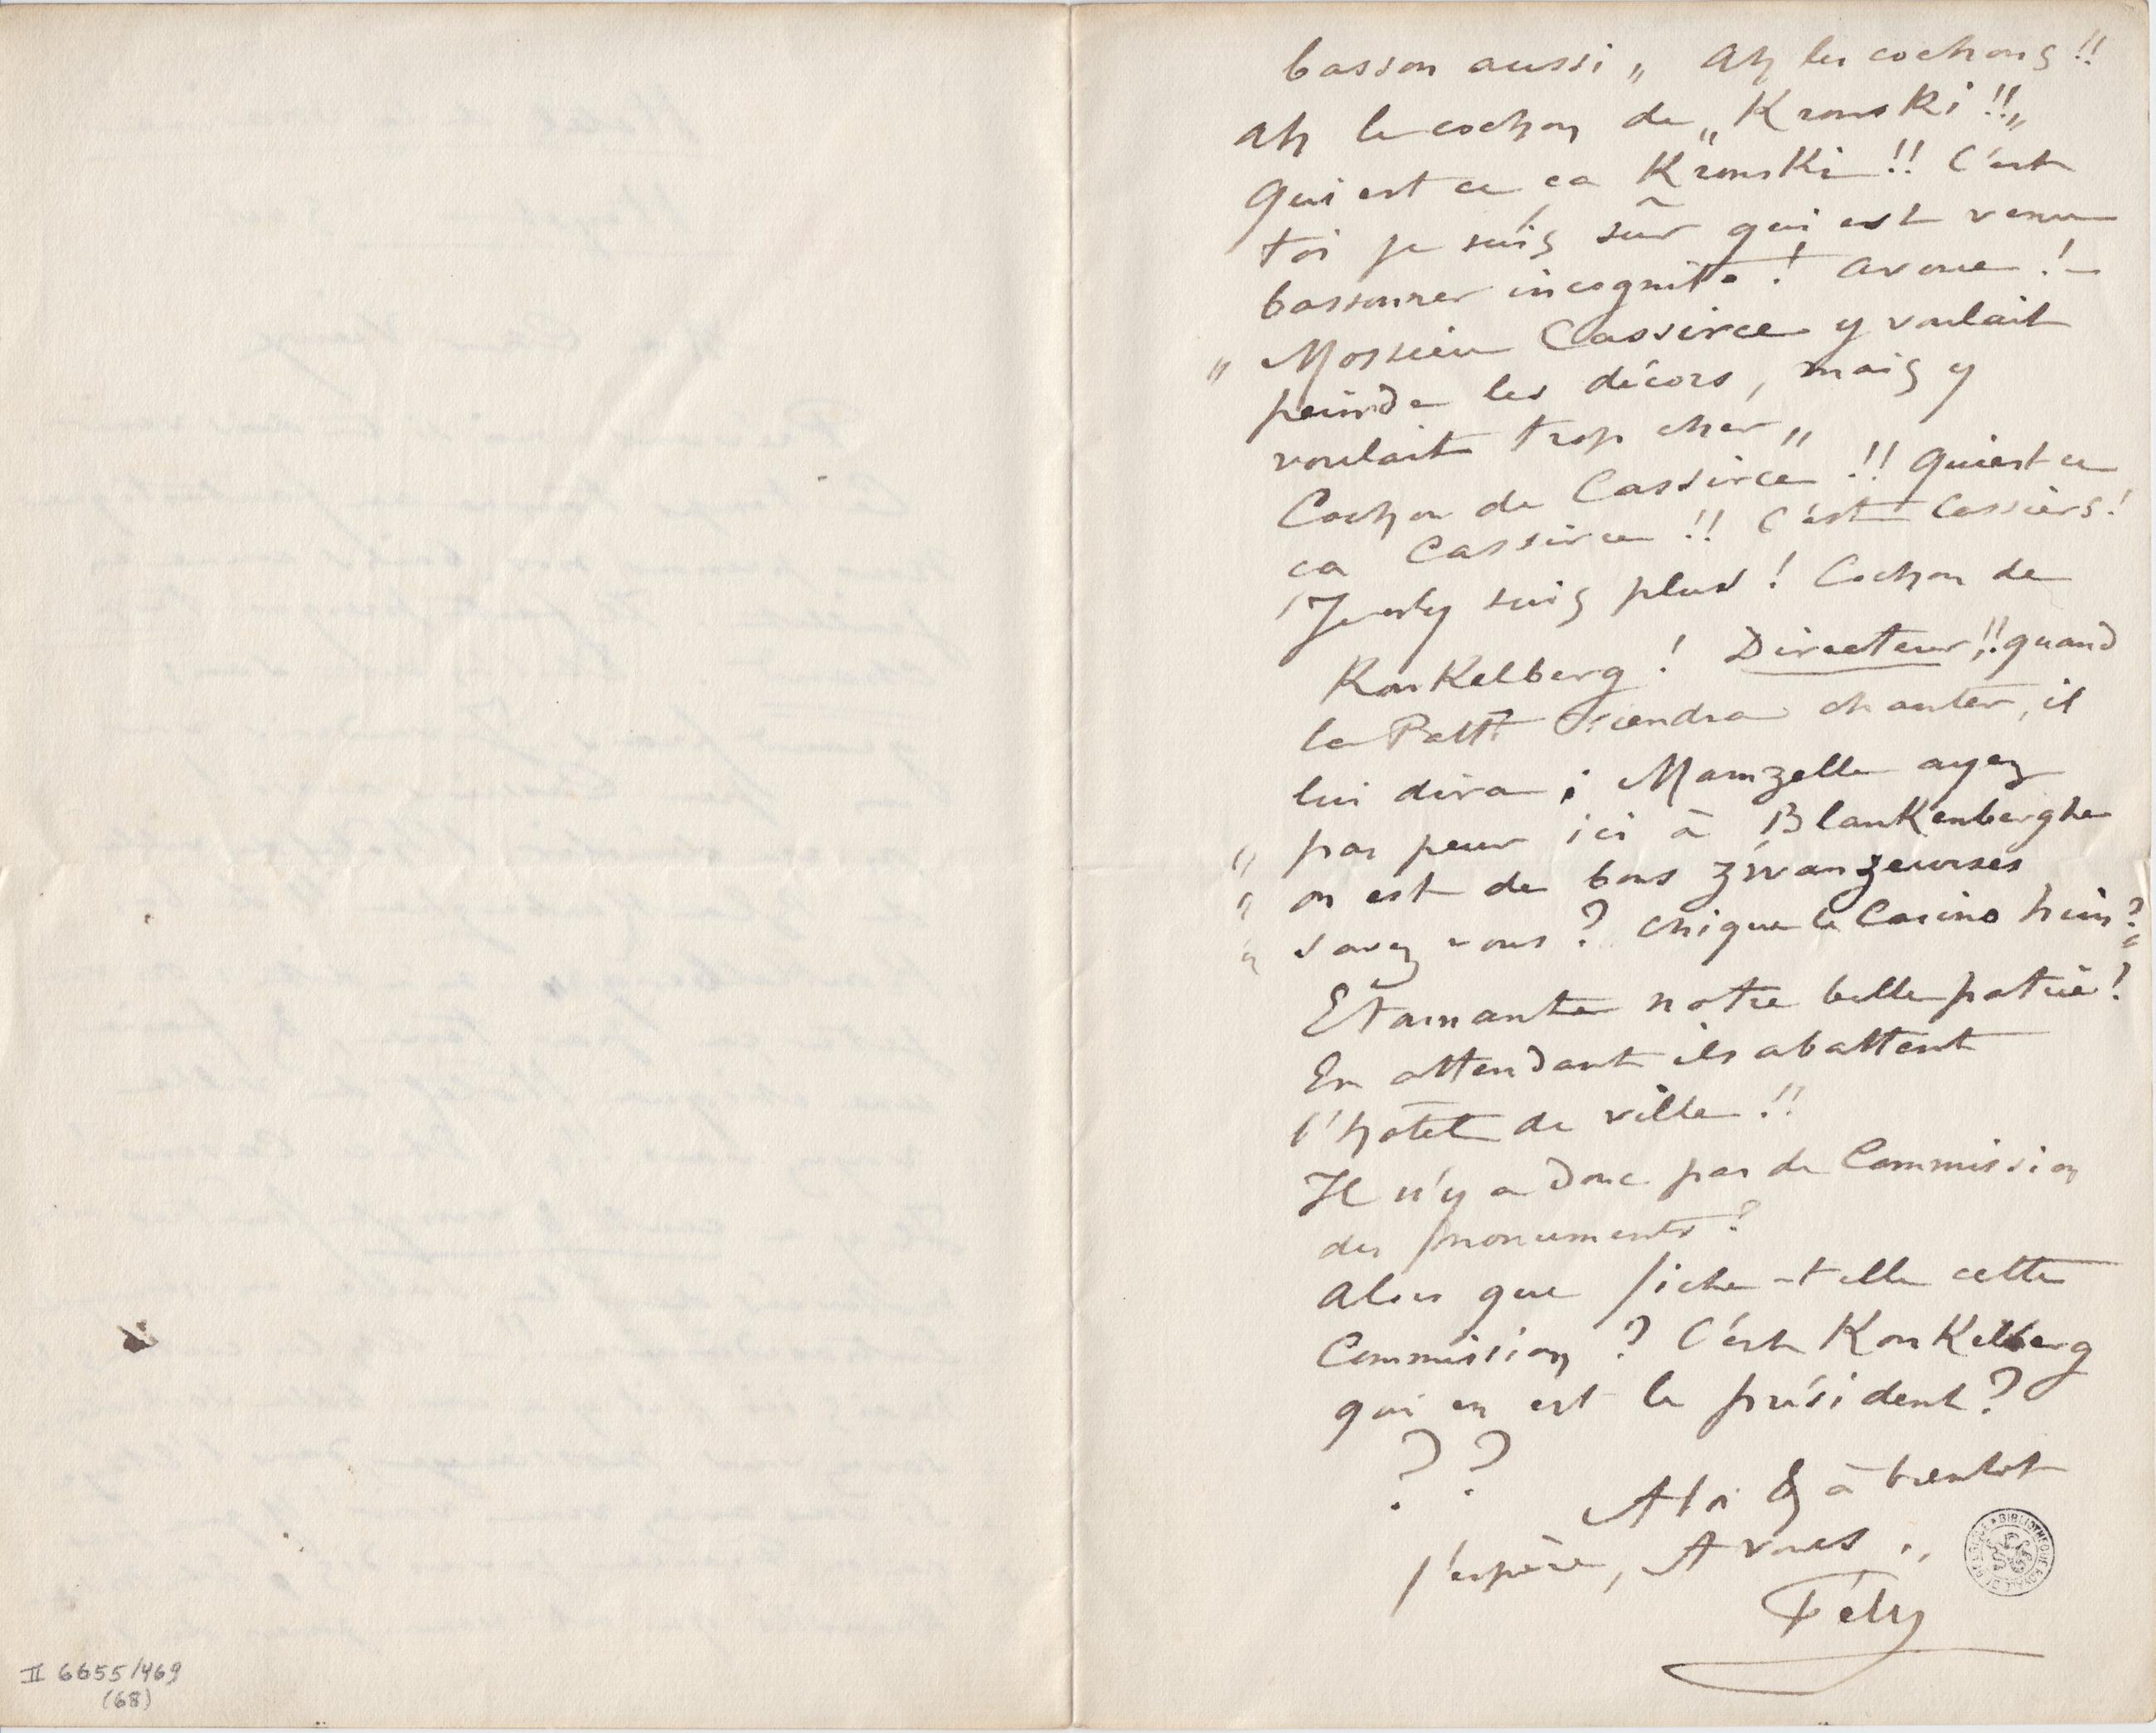 basson aussi „ Ah les cochons !!
Ah le cochon de „Kronski !!„
Qui est ce ça Kronski !! C'est
toi je suis sûr qui est venu
bassonner incognito ! avoue ! –
„ Mossieu Cassirce y voulait
peindre les décors, mais y
voulait trop cher „
Cochon de Cassirce !! Qui est ce
ça Cassirce !! C'est Cassiers !
J'en suis plus ! Cochon de
KonKelberg ! Directeur !! quand
la Patti viendra chanter, il
lui dira : Mamzelle ayez
„ pas peur ici à BlanKenberghe
„ on est de bons zwanzeurses
„ savez vous ? chique le Casino hein ?„
Etamante notre belle patrie !
En attendant ils abattent
l'hôtel de ville !!
Il n'y a donc pas de Commission
des monuments ?
Alors que fiche-t elle cette
Commission ? C'est KonKelberg
qui en est le président ?
? ?
A toi & à bientôt
j'espère, A vous .,
Fély
BIBLIOTHEQUE ROYALE DE BELGIQUE
II 6655/469
(68)